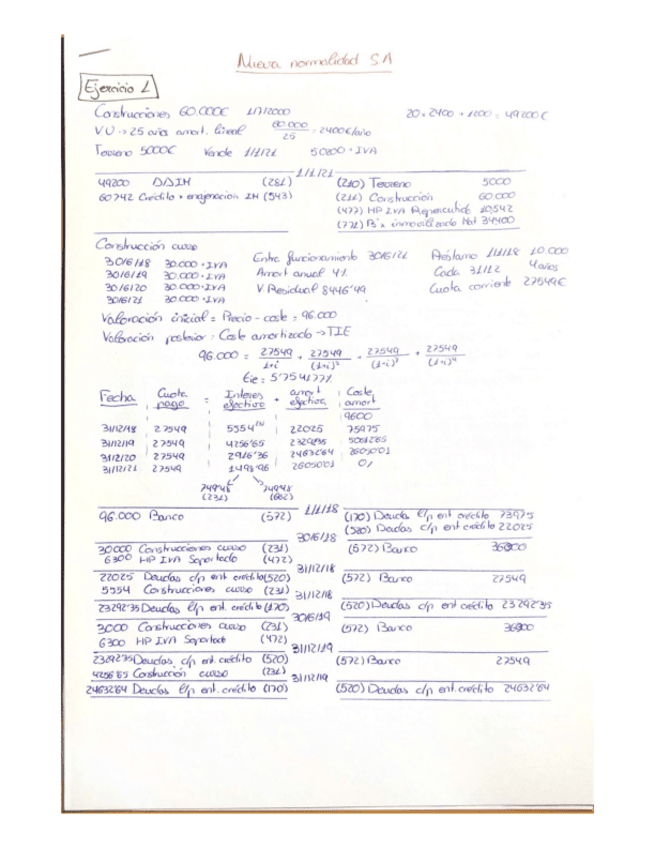 Nueva normalidad SA
Ejercicio 1
Construcciones 60.000€ 1/7/2000 20 · 2400 + 1200 = 49200€
VU → 25 años amort. lineal 60.000/25 = 2400€/año
Terreno 5000€ Vende 1/1/21 50200 + IVA
1/1/21
49200 AAIM (281) (210) Terreno 5000
60742 Crédito x enajenacion IM (543) (211) Construcción 60.000
(477) HP IVA Repercutido 10542
(771) Bº x inmovilizado Mat 34400
Construcción curso
30/6/18 30.000 + IVA Entra funcionamiento 30/6/21 Préstamo 1/1/18 10.000
30/6/19 30.000 + IVA Amort anual 4% Cada 31/12 4 años
30/6/20 30.000 + IVA V. Residual 8446'49 Cuota corriente 27549€
30/6/21 30.000 + IVA
Valoración inicial = Precio - coste = 96.000
Valoración posterior: Coste amortizado → TIE
96.000 = 27549/1+i + 27549/(1+i)² + 27549/(1+i)³ + 27549/(1+i)⁴
tie = 5'754177%
Fecha Cuota pago = Interes efectivo + amort efectiva Coste amort
9600
31/12/18 27549 5554 22025 75975
31/12/19 27549 4256'65 23292'35
31/12/20 27549 2916'36 24632'64 26050'01
31/12/21 27549 1498'96 26050'01 0
749'48 (231) 749'48 (662)
1/1/18
96.000 Banco (572) (170) Deudas l/p ent crédito 73975
(520) Deudas c/p ent credito 22025
30/6/18
30000 Construcciones curso (231) (572) Banco 36300
6300 HP IVA Soportado (472)
31/12/18
22025 Deudas c/p ent crédito (520) (572) Banco 27549
5554 Construcciones curso (231)
31/12/18
23292'35 Deudas l/p ent. crédito (170) (520) Deudas c/p ent credito 23292'35
30/6/19
3000 Construcciones curso (231) (572) Banco 36300
6300 HP IVA Soportado (472)
31/12/19
23292'35 Deudas c/p ent. crédito (520) (572) Banco 27549
4256'65 Construcción curso (231)
31/12/19
24632'64 Deudas l/p ent. crédito (170) (520) Deudas c/p ent. crédito 24632'64